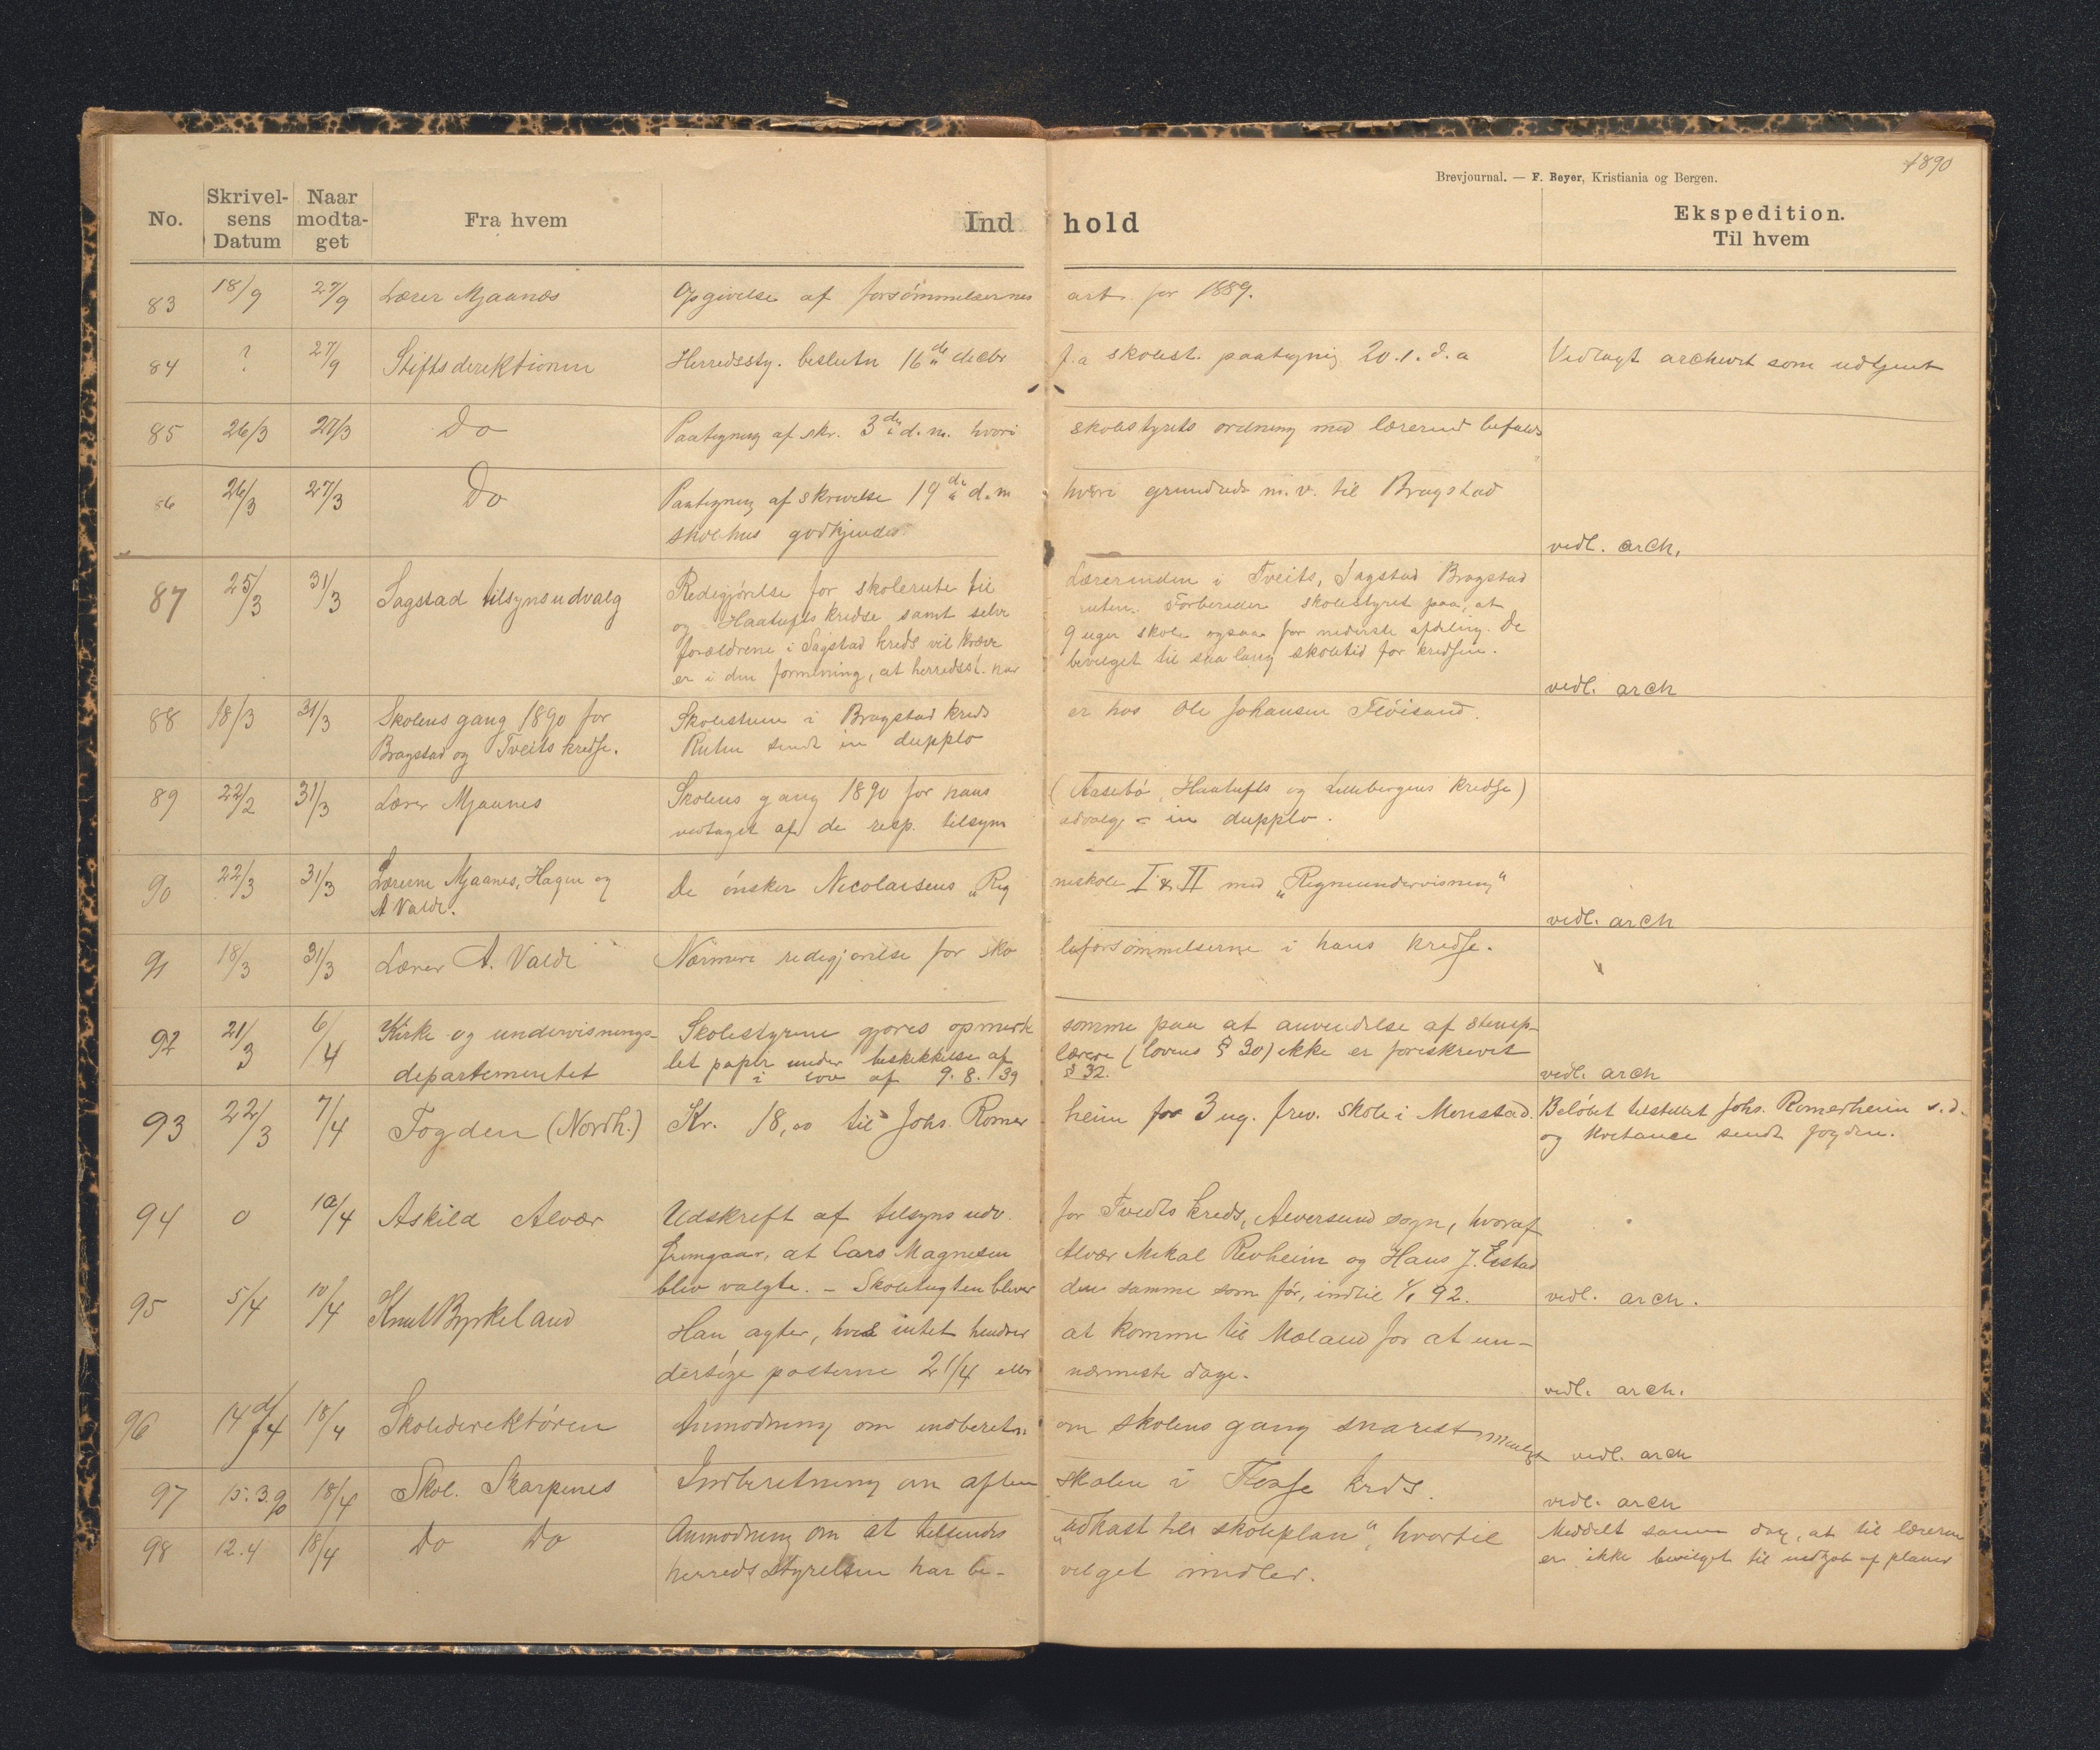 1890
Brevjournal. — F. Beyer, Kristiania og Bergen.
No. Skrivelsens Datum Naar modtaget Fra hvem Indhold Ekspedition. Til hvem
83 18/9 27/9 Lærer Mjaanæs Opgivelse af forsömmelsernes art for 1889.
84 ? 27/9 Stiftsdirektionen Herredssty. beslutn 16de decbr f.a skolest. paategnig 20.1.d.a Vedlagt archivet som udtjent
85 26/3 27/3 Do Paategning af skr. 3de d.m. hvori skolestyrets ordning med lærerind befales
86 26/3 27/3 Do Paategning af skrivelse 19de d.m hvori grundrids m.v. til Bragstad
skolehus godkjendes. vedl. arch.
87 25/3 31/3 Sagstad tilsynsudvalg Redegjörelse for skolerute til Lærerinden i Tveits, Sagstad Bragstad
og Haatufts kredse samt selve ruten. Forbereder skolestyret paa, at
forældrene i Sagstad kreds vil kræve 9 uger skole ogsaa for nederste afdeling. De
er i den formening, at herredsst. har bevilget til saa lang skoletid for kredsen. vedl. arch
88 18/3 31/3 Skolens gang 1890 for Skolestuen i Bragstad kreds er hos Ole Johansen Flöisand.
Bragstad og Tveits kredse. Ruten sendt in dupplo
89 22/2 31/3 Lærer Mjaanes Skolens gang 1890 for hans (Aasebö, Haatufts og Lillebergens kredse)
vedtaget af de resp. tilsyns udvalg - in dupplo.
90 22/3 31/3 Lærerne Mjaanes, Hagen og De önsker Nicolaisens „Reg neskole I & II med „Regneundervisning“
A Valde. vedl. arch
91 18/3 31/3 Lærer A. Valde Nærmere redegjörelse for sko leforsömmelserne i hans kredse.
92 21/3 6/4 Kirke og undervisnings- Skolestyrene gjöres opmærk somme paa at anvendelse af stemp-
departementet let papir under beskikkelse af lærere (lovens § 30) ikke er foreskrevet
i lov af 9.8.39 § 32. vedl. arch
93 22/3 7/4 Fogden (Nordh.) Kr. 18,00 til Johs. Romer heim for 3 ug. friv. skole i Monstad. Belöbet tilstillet Johs. Romerheim s.d.
og kvitance sendt fogden.
94 0 10/4 Askild Alvær Udskrift af tilsyns udv. for Tveits kreds, Alversund sogn, hvoraf
fremgaar, at Lars Magnesen Alvær Mikal Revheim og Hans J. Eistad
blev valgte. - Skoletugten bliver den samme som för, indtil 1/1 92. vedl. arch.
95 5/4 10/4 Knut Byrkeland Han agter, hvis intet hindrer at komme til Mæland for at un-
dersöge posterne 21/4 eller nærmeste dage. vedl. arch.
96 14/4 18/4 Skoledirektören Anmodning om indberetn. om skolens gang snarest muligt vedl. arch
97 15.3.90 18/4 Skol. Skarpenes Indberetning om aften skolen i Floxe krds. vedl. arch
98 12.4 18/4 Do Do Anmodning om at tilsendes „udkast til skoleplan“, hvortil Meddelt samme dag, at til lærerne
herredsstyrelsen har be- vilget midler. er ikke bevilget til indkjöb af planer